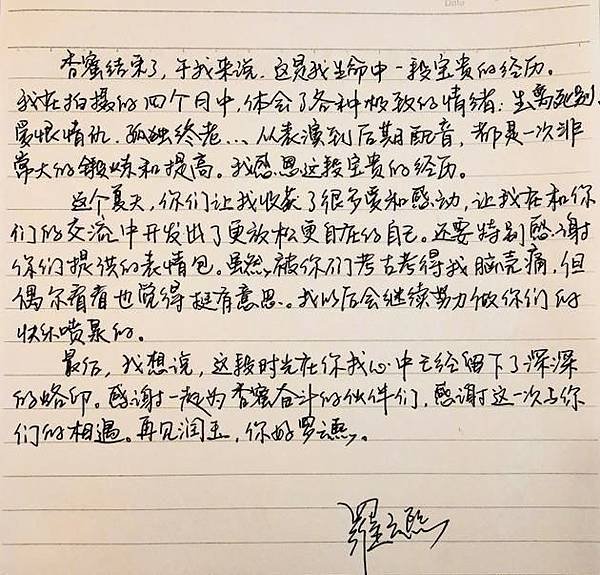 Date
香蜜结束了，于我来说，这是我生命中一段宝贵的经历。
我在拍摄的四个月中，体会了各种极致的情绪：生离死别，
爱恨情仇，孤独终老...从表演到后期配音，都是一次非
常大的锻炼和提高。我感恩这段宝贵的经历。
这个夏天，你们让我收获了很多爱和感动，让我在和你
们的交流中开发出了更放松更自在的自己。还要特别感谢
你们提供的表情包。虽然，被你们考古考得我脑壳痛，但
偶尔看看也觉得挺有意思。我以后会继续努力做你们的
快乐喷泉的。
最后，我想说，这段时光在你我心中已经留下了深深
的烙印。感谢一起为香蜜奋斗的伙伴们，感谢这一次与你
们的相遇。再见润玉，你好罗云熙。
罗云熙